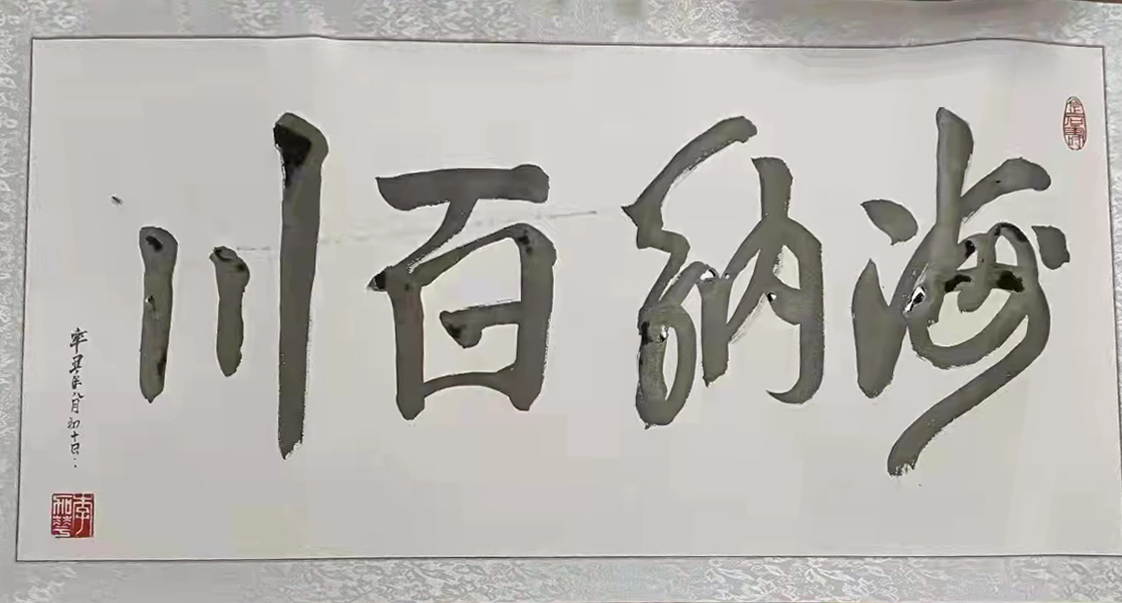 海纳百川
辛丑年八月初十日